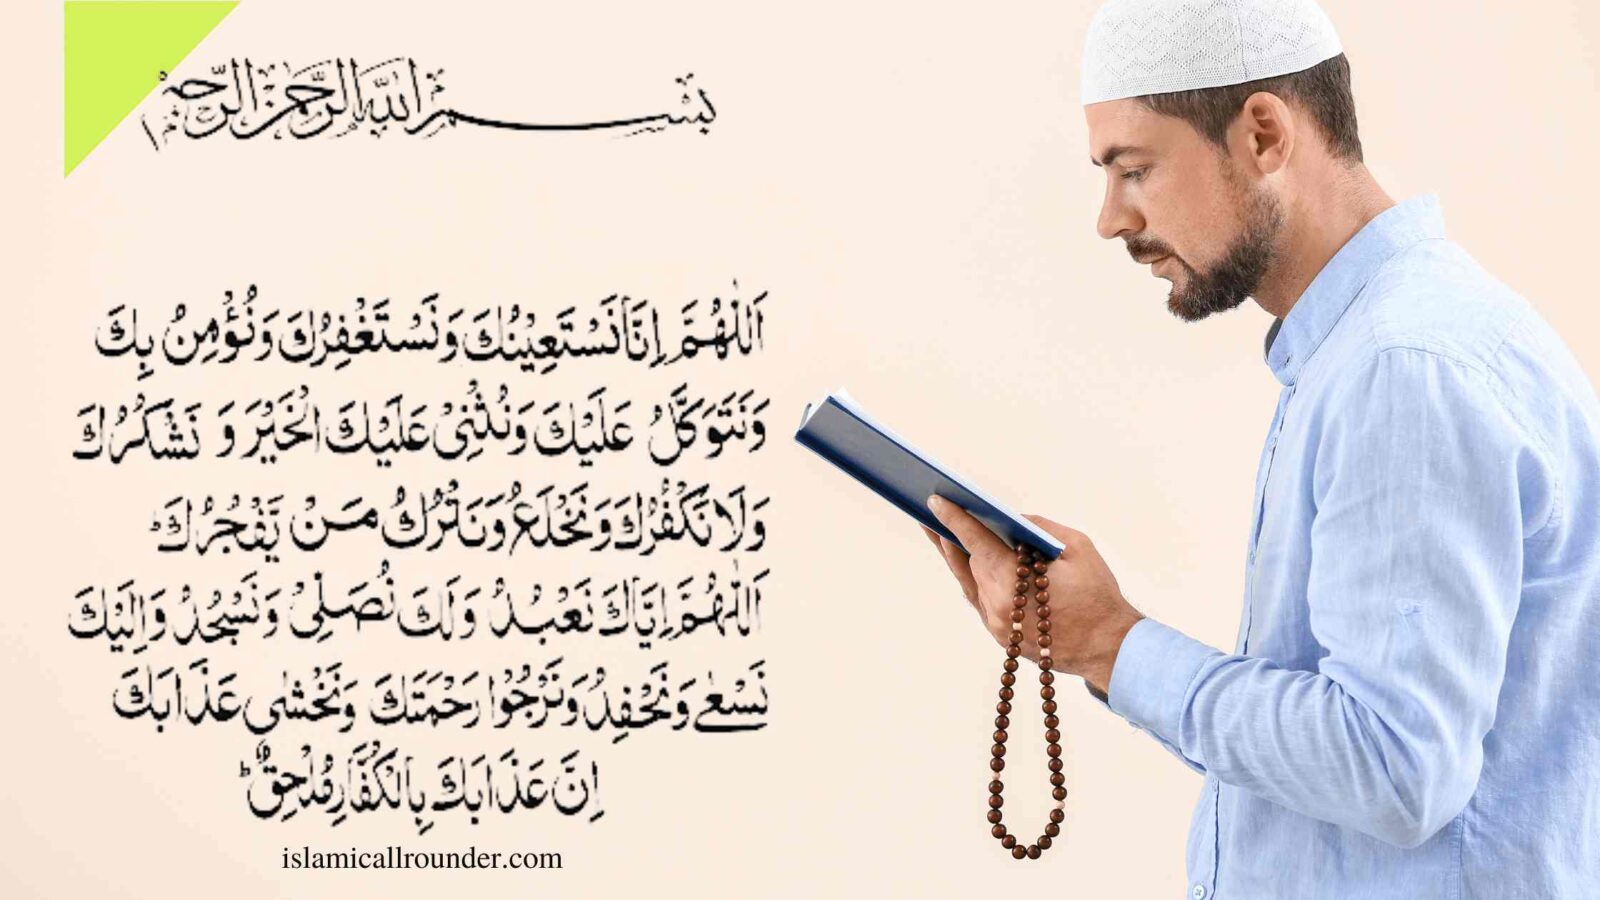 بسم الله الرحمن الرحيم
اَللّٰهُمَّ اِنَّا نَسْتَعِيْنُكَ وَنَسْتَغْفِرُكَ وَنُؤْمِنُ بِكَ
وَنَتَوَكَّلُ عَلَيْكَ وَنُثْنِیْ عَلَيْكَ الْخَيْرَ وَ نَشْكُرُكَ
وَلَا نَكْفُرُكَ وَنَخْلَعُ وَنَتْرُكُ مَنْ يَّفْجُرُكَ ؕ
اَللّٰهُمَّ اِيَّاكَ نَعْبُدُ وَلَكَ نُصَلِّیْ وَنَسْجُدُ وَاِلَيْكَ
نَسْعٰے وَنَحْفِدُ وَنَرْجُوْا رَحْمَتَكَ وَنَخْشٰی عَذَابَكَ
اِنَّ عَذَابَكَ بِالْكُفَّارِ مُلْحِقٌ ؕ
islamicallrounder.com